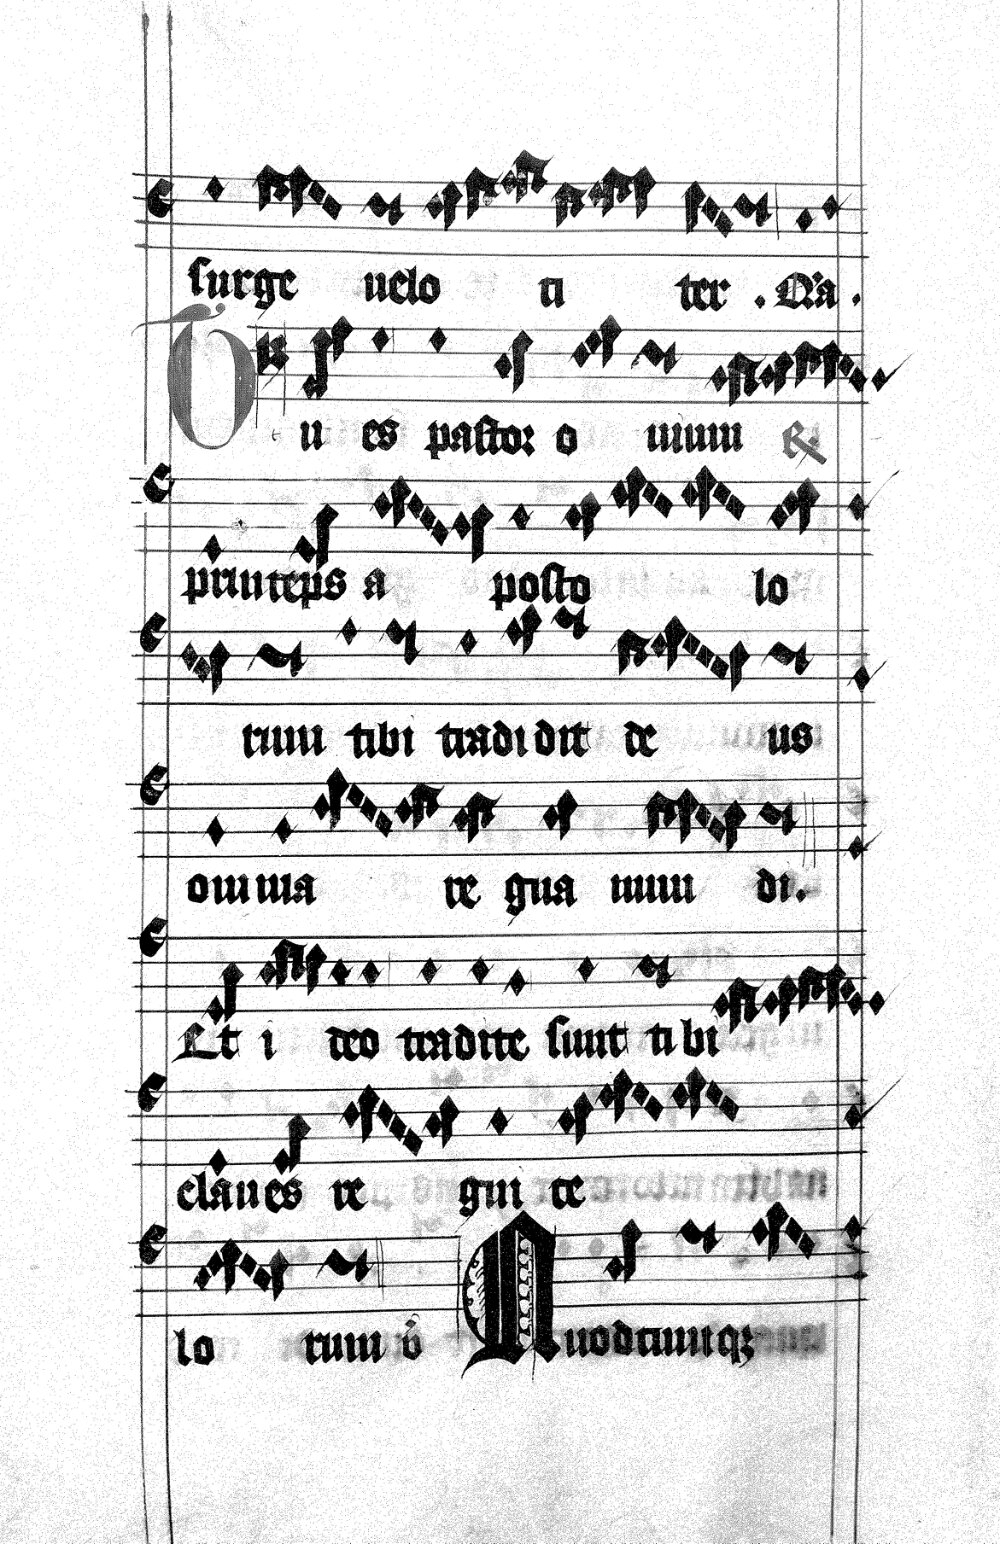 surge uelo ti ter . Q'a .
Tu es pastor o uium &
princeps a posto lo
rum tibi tradidit de us
omnia re gna mun di.
Et i deo tradite sunt tibi
claues re gni ce
lo rum v̊ Quodcumqꝫ